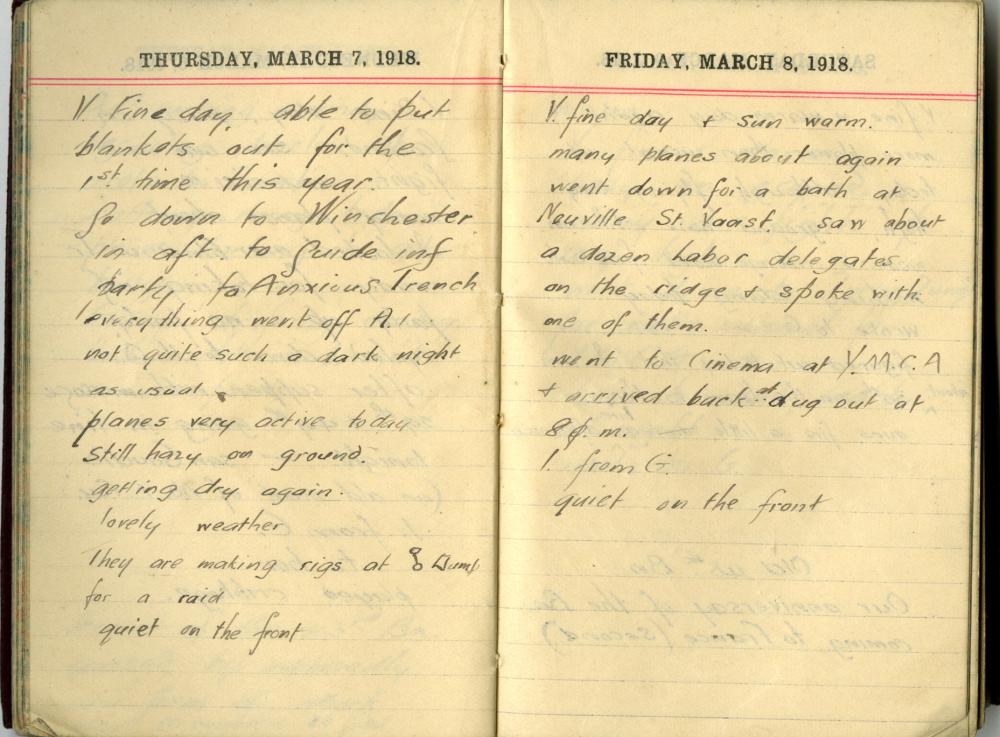 THURSDAY, MARCH 7, 1918.
V. Fine day, able to put
blankets out for the
1st time this year.
Go down to Winchester
in aft to Guide inf
party to Anxious Trench
everything went off A.1.
not quite such a dark night
as usual.
planes very active today
Still hazy on ground.
getting dry again.
lovely weather
They are making rigs at 8 Dump
for a raid
quiet on the front
FRIDAY, MARCH 8, 1918.
V. fine day + sun warm.
many planes about again
went down for a bath at
Neuville St. Vaast. saw about
a dozen Labor delegates
on the ridge + spoke with
one of them.
went to Cinema at Y.M.C.A
+ arrived back at dug out at
8 p.m.
1. from G.
quiet on the front